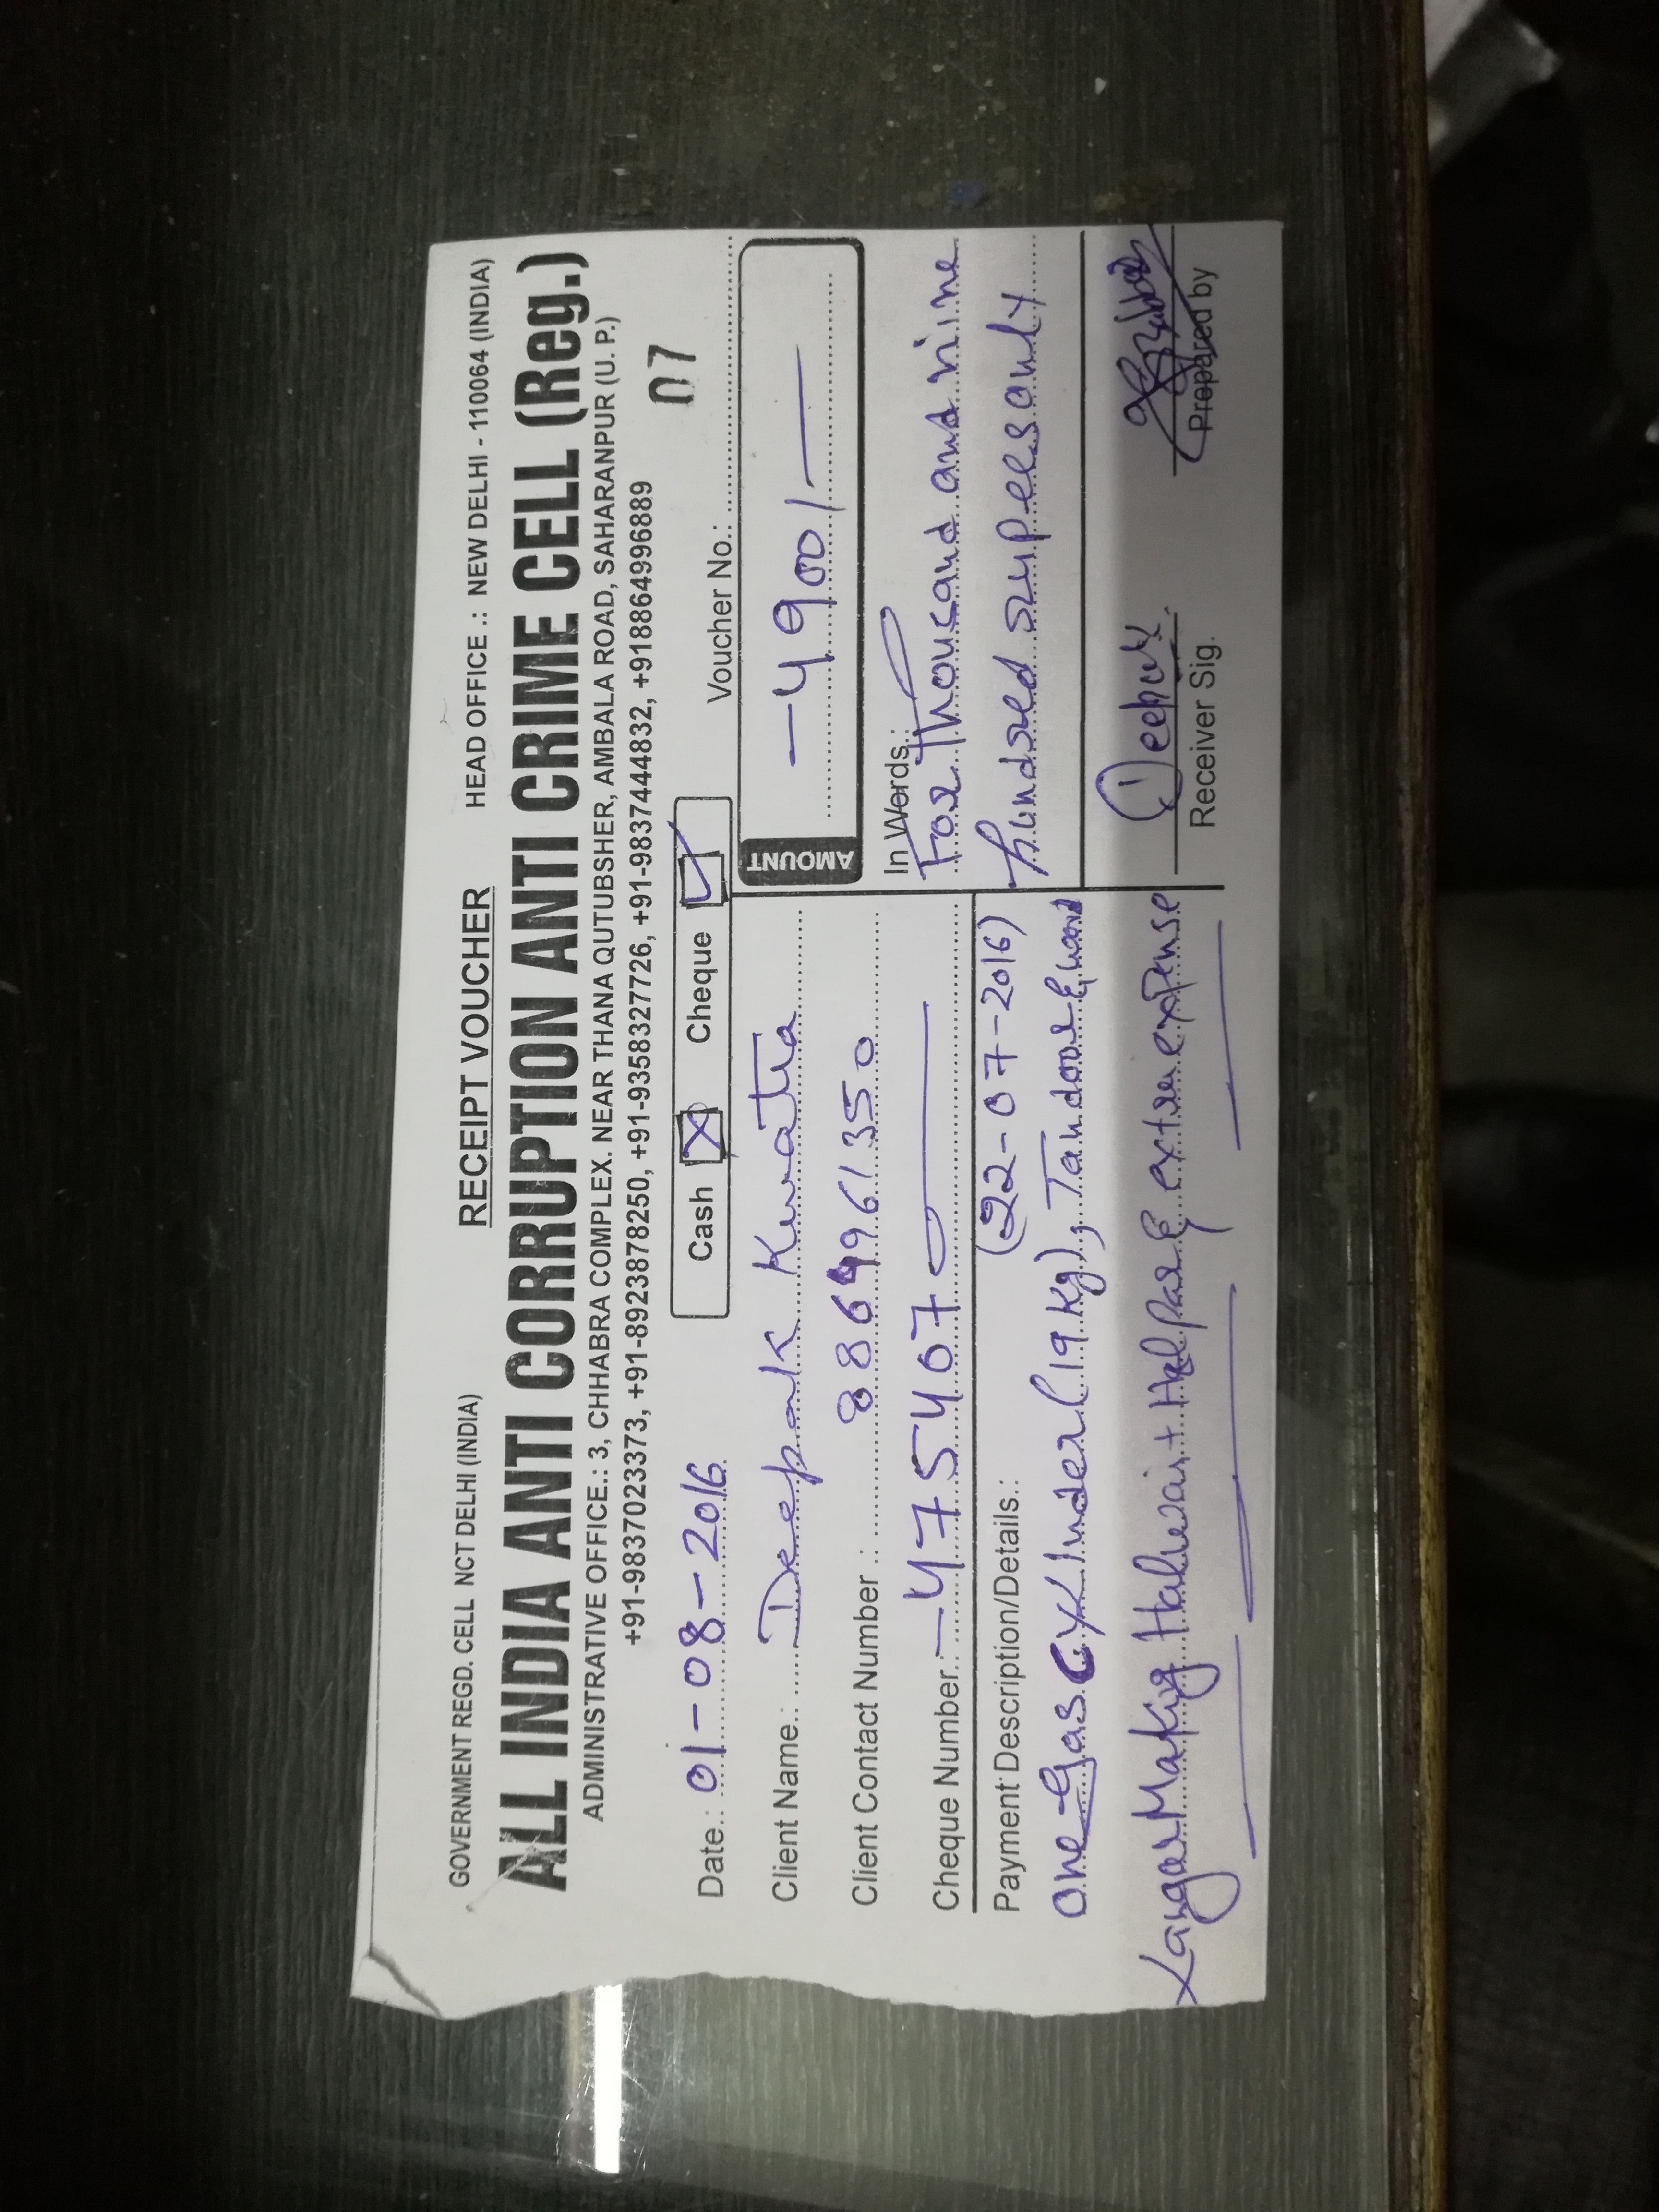 GOVERNMENT REGD. CELL NCT DELHI (INDIA) RECEIPT VOUCHER HEAD OFFICE .: NEW DELHI - 110064 (INDIA)
ALL INDIA ANTI CORRUPTION ANTI CRIME CELL (Reg.)
ADMINISTRATIVE OFFICE.: 3, CHHABRA COMPLEX. NEAR THANA QUTUBSHER, AMBALA ROAD, SAHARANPUR (U. P.)
+91-9837023373, +91-8923878250, +91-9358327726, +91-9837444832, +918864996889
Date.: 01-08-2016 Cash Cheque Voucher No.: 07
Client Name.: Deepak Kwatra
AMOUNT -4900/-
Client Contact Number .: 8864961350
Cheque Number.: -475407
In Words.:
For Thousand and nine
hundred rupees only
Payment Description/Details.: (22-07-2016)
One Gas Cylinder (19 Kg), Tandoor & wood
Langar Making Halwai + Helpar & extra expense
Deepak
Receiver Sig. Prepared by